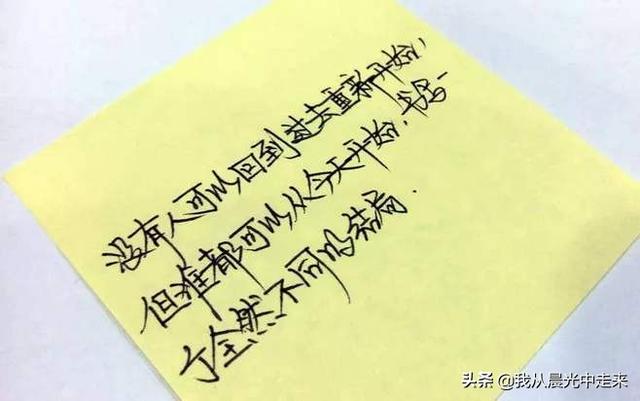 没有人可以回到过去重新开始,
但谁都可以从今天开始.书写一
个全然不同的结局.
头条 @我从晨光中走来